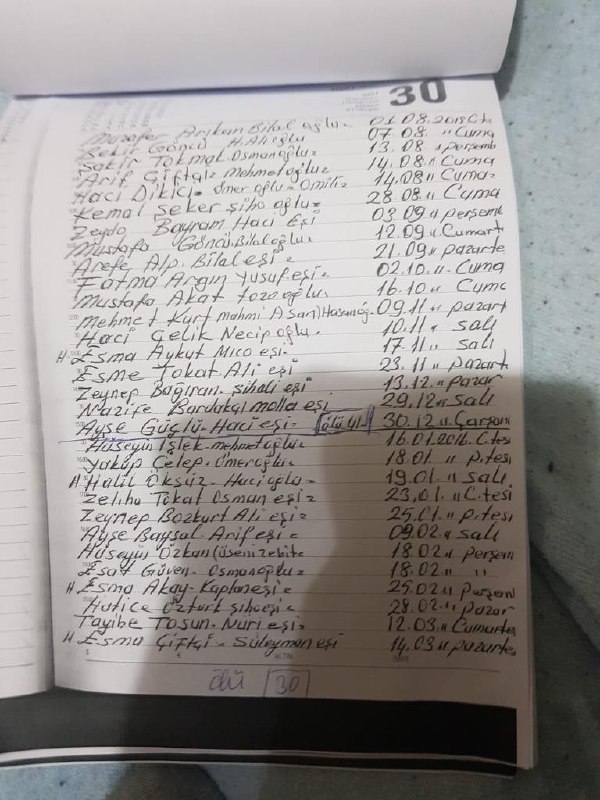 30
Muzafer Arıkan Bilal oğlu. 01.08.2015 C.te
Bekir Göncü H.Ali oğlu 07 08. " Cuma
Şakir Tokmal Osmanoğlu. 13.08 " perşemb
Arif Çiftçi = Mehmetoğlu = 14.08 " Cuma
Haci Dikici = ömer oğlu = Omili = 14.08 " Cuma =
Kemal Şeker şiho oğlu = 28.08 " Cuma
Zeydo Bayram Haci Eşi 03.09 " perşeme
Mustafa Göncü Bilaloğlu. 12.09 " Cumart
Arefe Alp. Bilal eşi = 21.09 " pazarte
Fatma Argın Yusuf eşi = 02.10. " Cuma
Mustafa Akat tozooğlu. 16.10 " Cuma
Mehmet Kurt mahmi Asan (Hasanoğ. 09.11 " pazart
Haci Çelik Necip oğlu. 10.11 " Salı
H Esma Aykut Mıco eşi. 17.11 " Salı
Esme Tokat Ali eşi 23.11 " pazart
Zeynep Bağıran. şihali eşi 13.12. " pazar
Nazife Bardakçi molla eşi 29.12 " Salı
Ayşe Güçlü. Haci eşi = ölü yıl 30.12 " Çarşam
Hüseyin İşlek - mehmetoğlu = 16.01.2016. C.tesi
Yakup Çelep. Ömeroğlu = 18.01 " p.tesi
H Halil Öksüz - Hacioğlu = 19.01. " Salı
Zeliha Tokat Osman eşi = 23.01. " C.tesi
Zeynep Bozkurt Ali eşi = 25.01. " p.tesi
Ayşe Baysal. Arif eşi = 09.02. " Salı
Hüseyin Özkun (üseni zebite 18.02 " perşem
Esat Güven - Osmanoğlu = 18.02. " "
H Esma Akay - Kaplan eşi = 25.02 " perşem
Hatice Öztürk şiho eşi = 28.02 " pazar
Tayibe Tosun. Nuri eşi = 12.03 " Cumartes
H Esma Çiftçi = Süleyman eşi 14.03 " pazartes
ölü 30